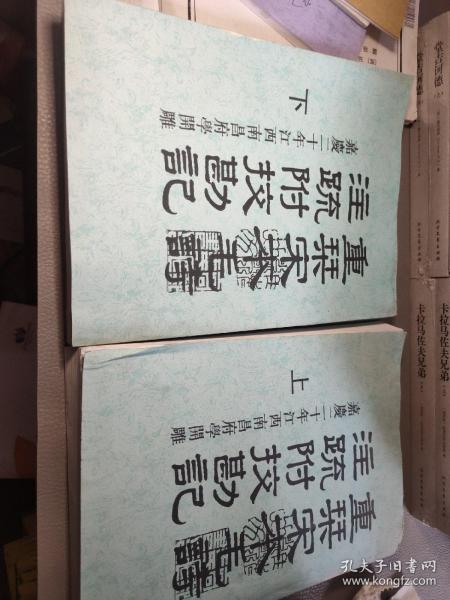 重栞宋本毛詩
注疏附挍勘記
嘉慶二十年江西南昌府學開雕
下
重栞宋本毛詩
注疏附挍勘記
嘉慶二十年江西南昌府學開雕
上
堂吉诃德
卡拉马佐夫兄弟
卡拉马佐夫兄弟
孔夫子旧书网
www.kongfz.com